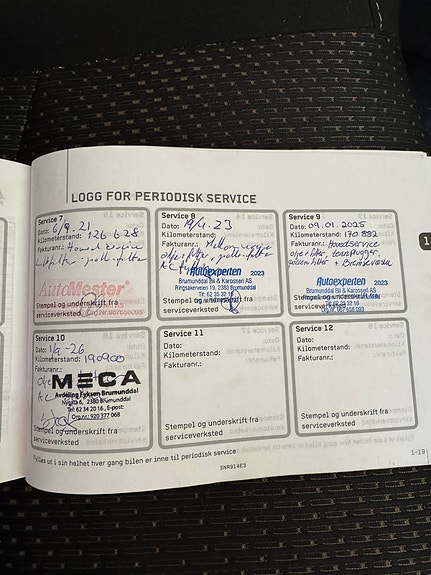 LOGG FOR PERIODISK SERVICE
Service 7
Dato: 6/9-21
Kilometerstand: 126628
Fakturanr.: Hovedservice
luftfilter - pollenfilter
AutoMester
Stempel og underskrift fra
serviceverksted
Service 8
Dato: 19/4-23
Kilometerstand:
Fakturanr.: Mellomservice
oljefilter - pollenfilter
Autoexperten 2023
Brumunddal Bil & Karosseri AS
Ringsakerveien 19, 2380 Brumunddal
Tlf: 62 35 32 16
Stempel og underskrift fra
serviceverksted
Service 9
Dato: 09.01.2025
Kilometerstand: 170.882
Fakturanr.: Hovedservice
oljefilter, tennplugger,
pollenfilter + Bremsevæske
Autoexperten 2023
Brumunddal Bil & Karosseri AS
Tlf: 62 35 32 16
Stempel og underskrift fra
serviceverksted
Service 10
Dato: 1/9-26
Kilometerstand: 190900
Fakturanr.:
MECA
Avdeling Eyksen Brumunddal
Nygata 6, 2380 Brumunddal
Tel: 62 34 20 16, E-post:
Org.nr.: 920 377 068
Stempel og underskrift fra
serviceverksted
Service 11
Dato:
Kilometerstand:
Fakturanr.:
Stempel og underskrift fra
serviceverksted
Service 12
Dato:
Kilometerstand:
Fakturanr.:
Stempel og underskrift fra
serviceverksted
Fylles ut i sin helhet hver gang bilen er inne til periodisk service
1-19
SNR914E3
1